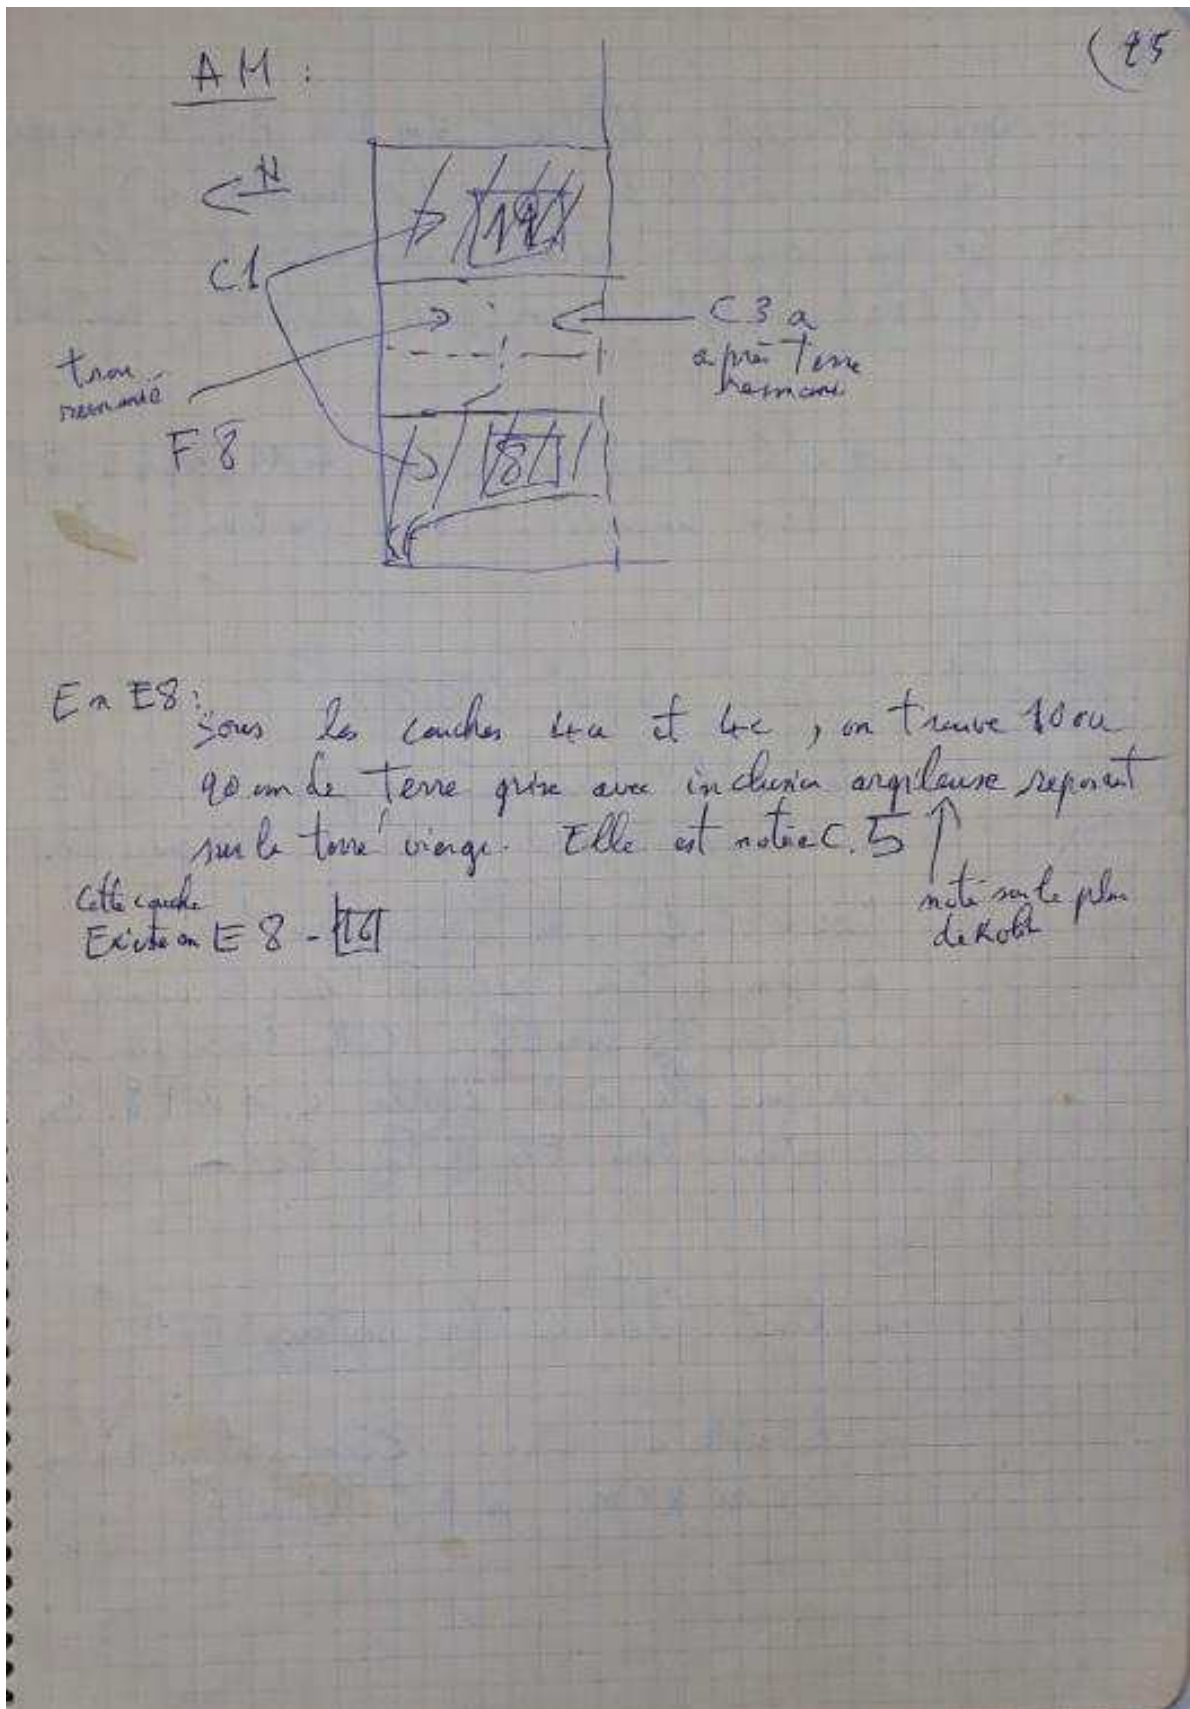 (25
AM :
N
C1
C3a
après Terre
remanié
trou
remanié
F8
8
En E8:
sous les couches 4a et 4c, on trouve 10 ou
20 cm de Terre grise avec inclusion argileuse reposant
sur la terre vierge. Elle est notée C.5
noté sur le plan
de
Cette couche
Existe en E8 - 16